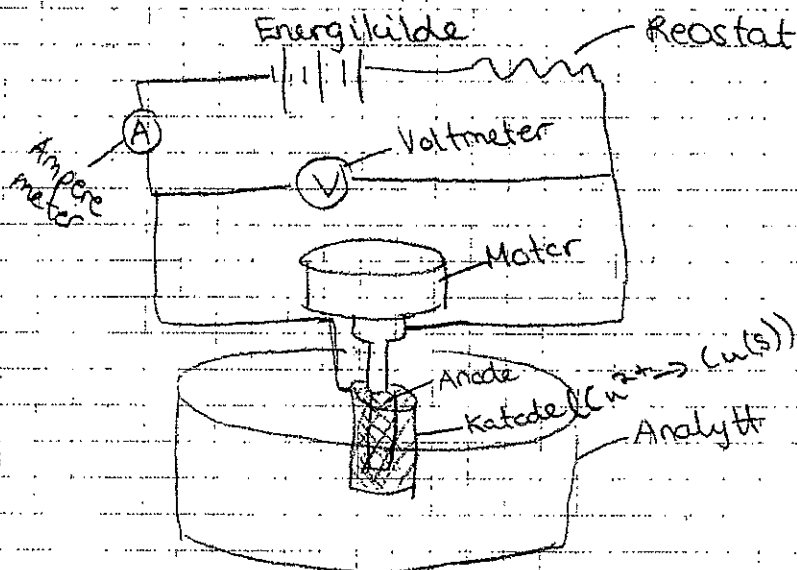 Energikilde
Reostat
A
Ampere
meter
Voltmeter
V
Motor
Anode
Katode (Cu²⁺ → Cu(s))
Analytt